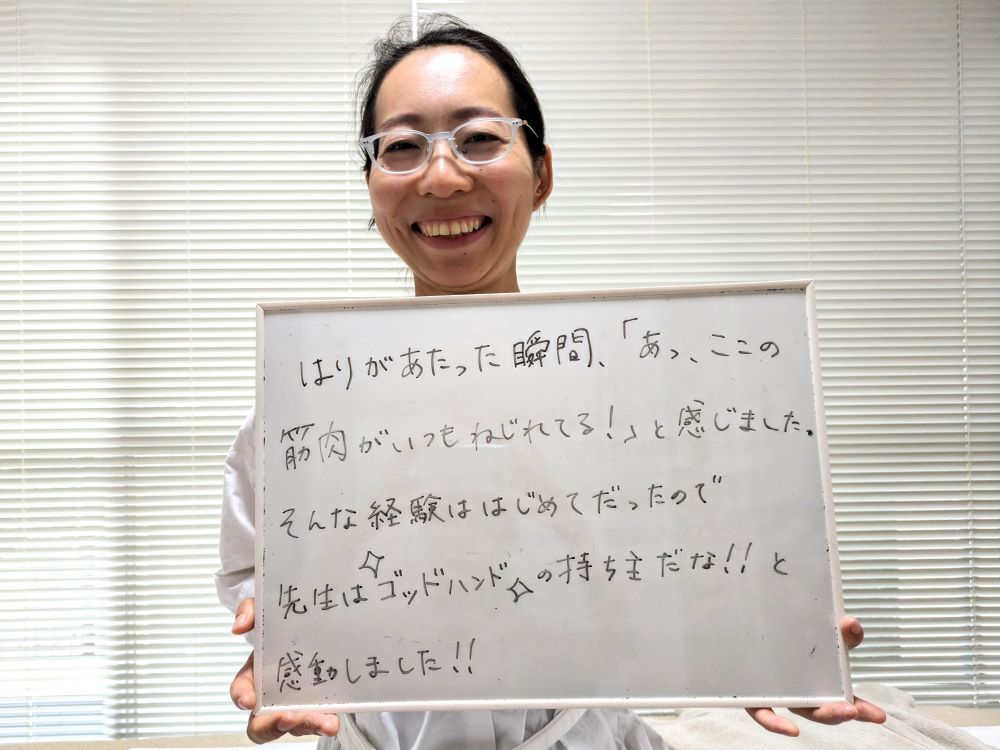 はりがあたった瞬間、「あっ、ここの
筋肉がいつもねじれてる!」と感じました。
そんな経験ははじめてだったので
先生は✧ゴッドハンド✧の持ち主だな!!と
感動しました!!